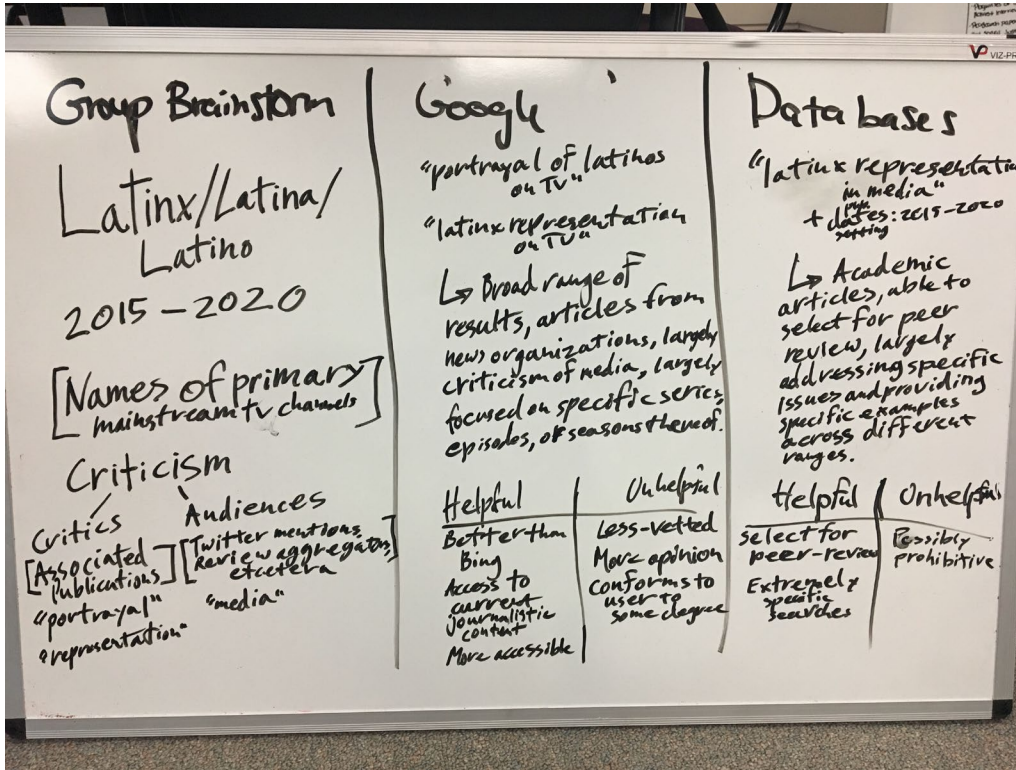 Group Brainstorm
Latinx/Latina/
Latino
2015 – 2020
[Names of primary
mainstream tv channels]
Criticism
Critics
[Associated
Publications]
"portrayal"
"representation"
Audiences
[Twitter mentions,
Review aggregators,
etcetera]
"media"
Google
"portrayal of latinos
on TV"
"latinx representation
on TV"
↳ Broad range of
results, articles from
news organizations, largely
criticism of media, largely
focused on specific series,
episodes, or seasons thereof.
Helpful
Better than
Bing
Access to
current
journalistic
content
More accessible
Unhelpful
Less-vetted
More opinion
conforms to
user to
some degree
Databases
"latinx representation
in media"
+ dates: 2015-2020
setting
↳ Academic
articles, able to
select for peer
review, largely
addressing specific
issues and providing
specific examples
across different
ranges.
Helpful
select for
peer-review
Extremely
specific
searches
Unhelpful
Possibly
prohibitive
VIZ-PR